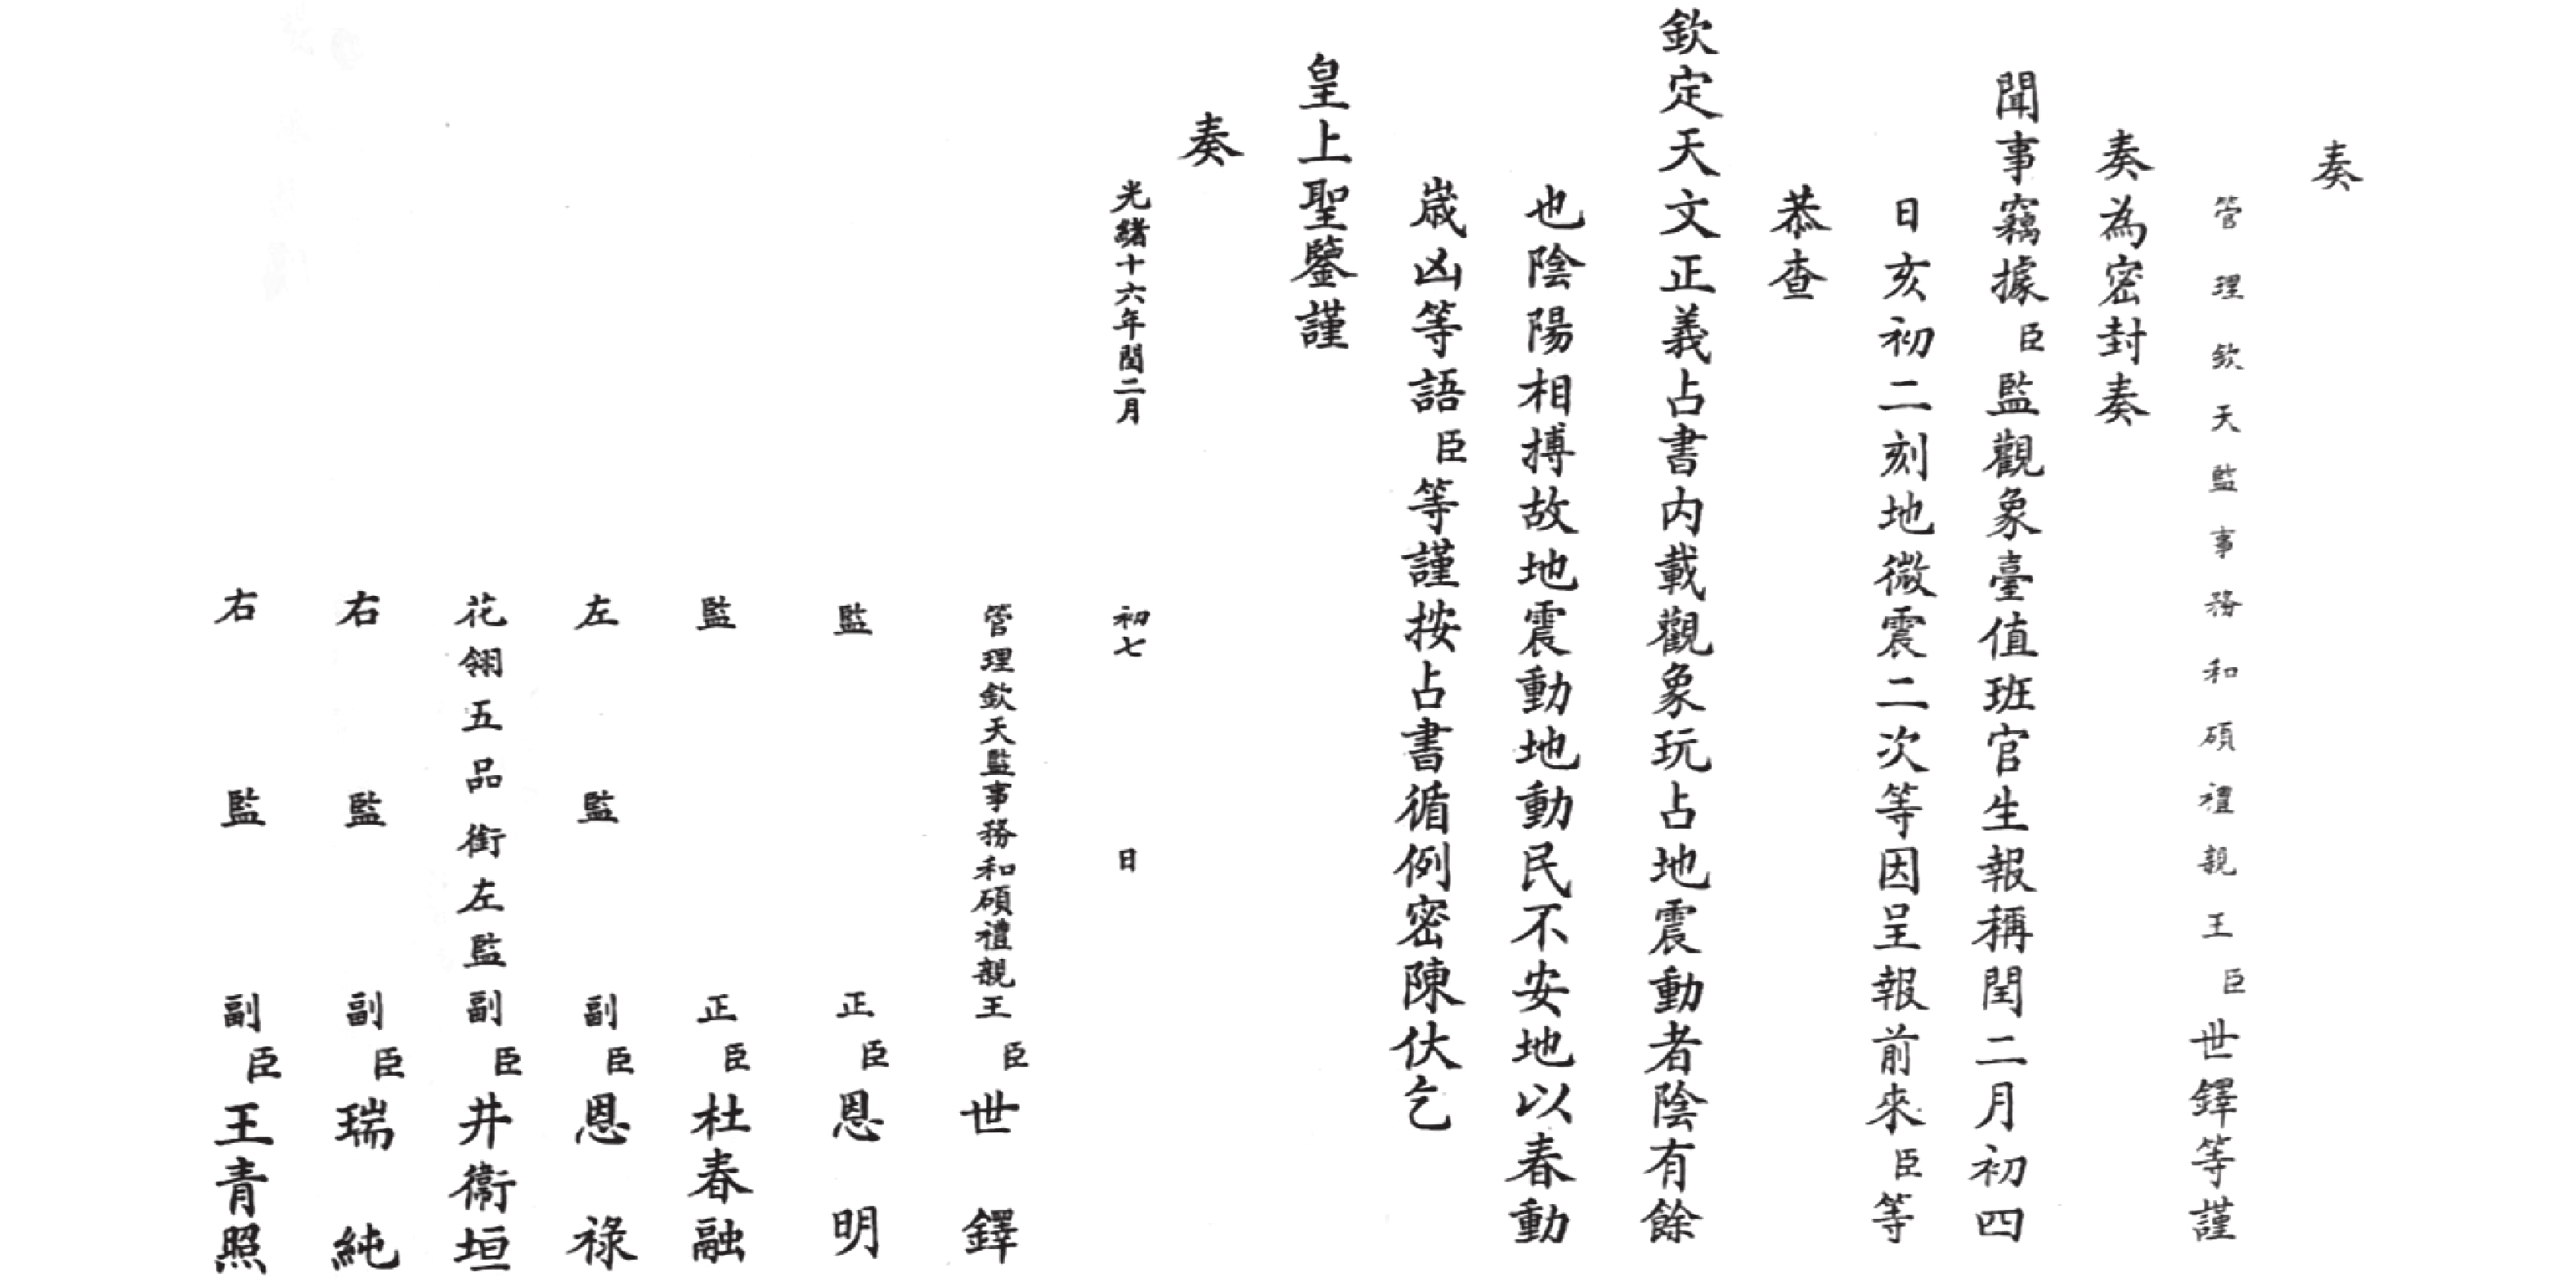 奏
管理欽天監事務和碩禮親王臣世鐸等謹
奏為密封奏
聞事竊據臣監觀象臺值班官生報稱閏二月初四
日亥初二刻地微震二次等因呈報前來臣等
恭查
欽定天文正義占書內載觀象玩占地震動者陰有餘
也陰陽相搏故地震動地動民不安地以春動
歲凶等語臣等謹按占書循例密陳伏乞
皇上聖鑒謹
奏
光緒十六年閏二月初七日
管理欽天監事務和碩禮親王臣世鐸
監正臣恩明
監正臣杜春融
左監副臣恩祿
花翎五品銜左監副臣井衛垣
右監副臣瑞純
右監副臣王青照